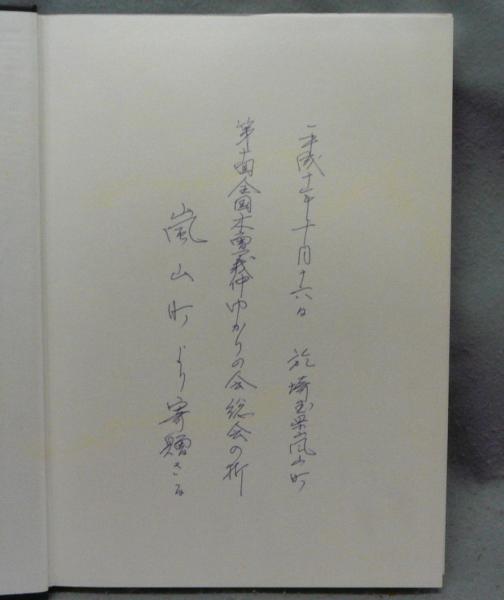 平成十年十月十六日 於埼玉県嵐山町
第十回全国木曽義仲ゆかりの会総会の折
嵐山町より寄贈さる